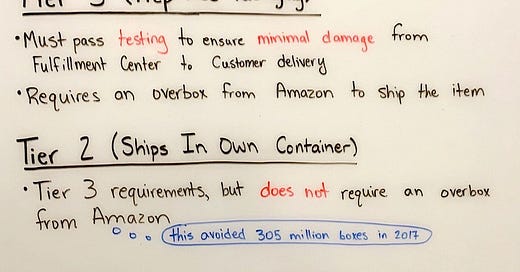 •Must pass testing to ensure minimal damage from
Fulfillment Center to Customer delivery
•Requires an overbox from Amazon to ship the item
Tier 2 (Ships In Own Container)
•Tier 3 requirements, but does not require an overbox
from Amazon
this avoided 305 million boxes in 2017